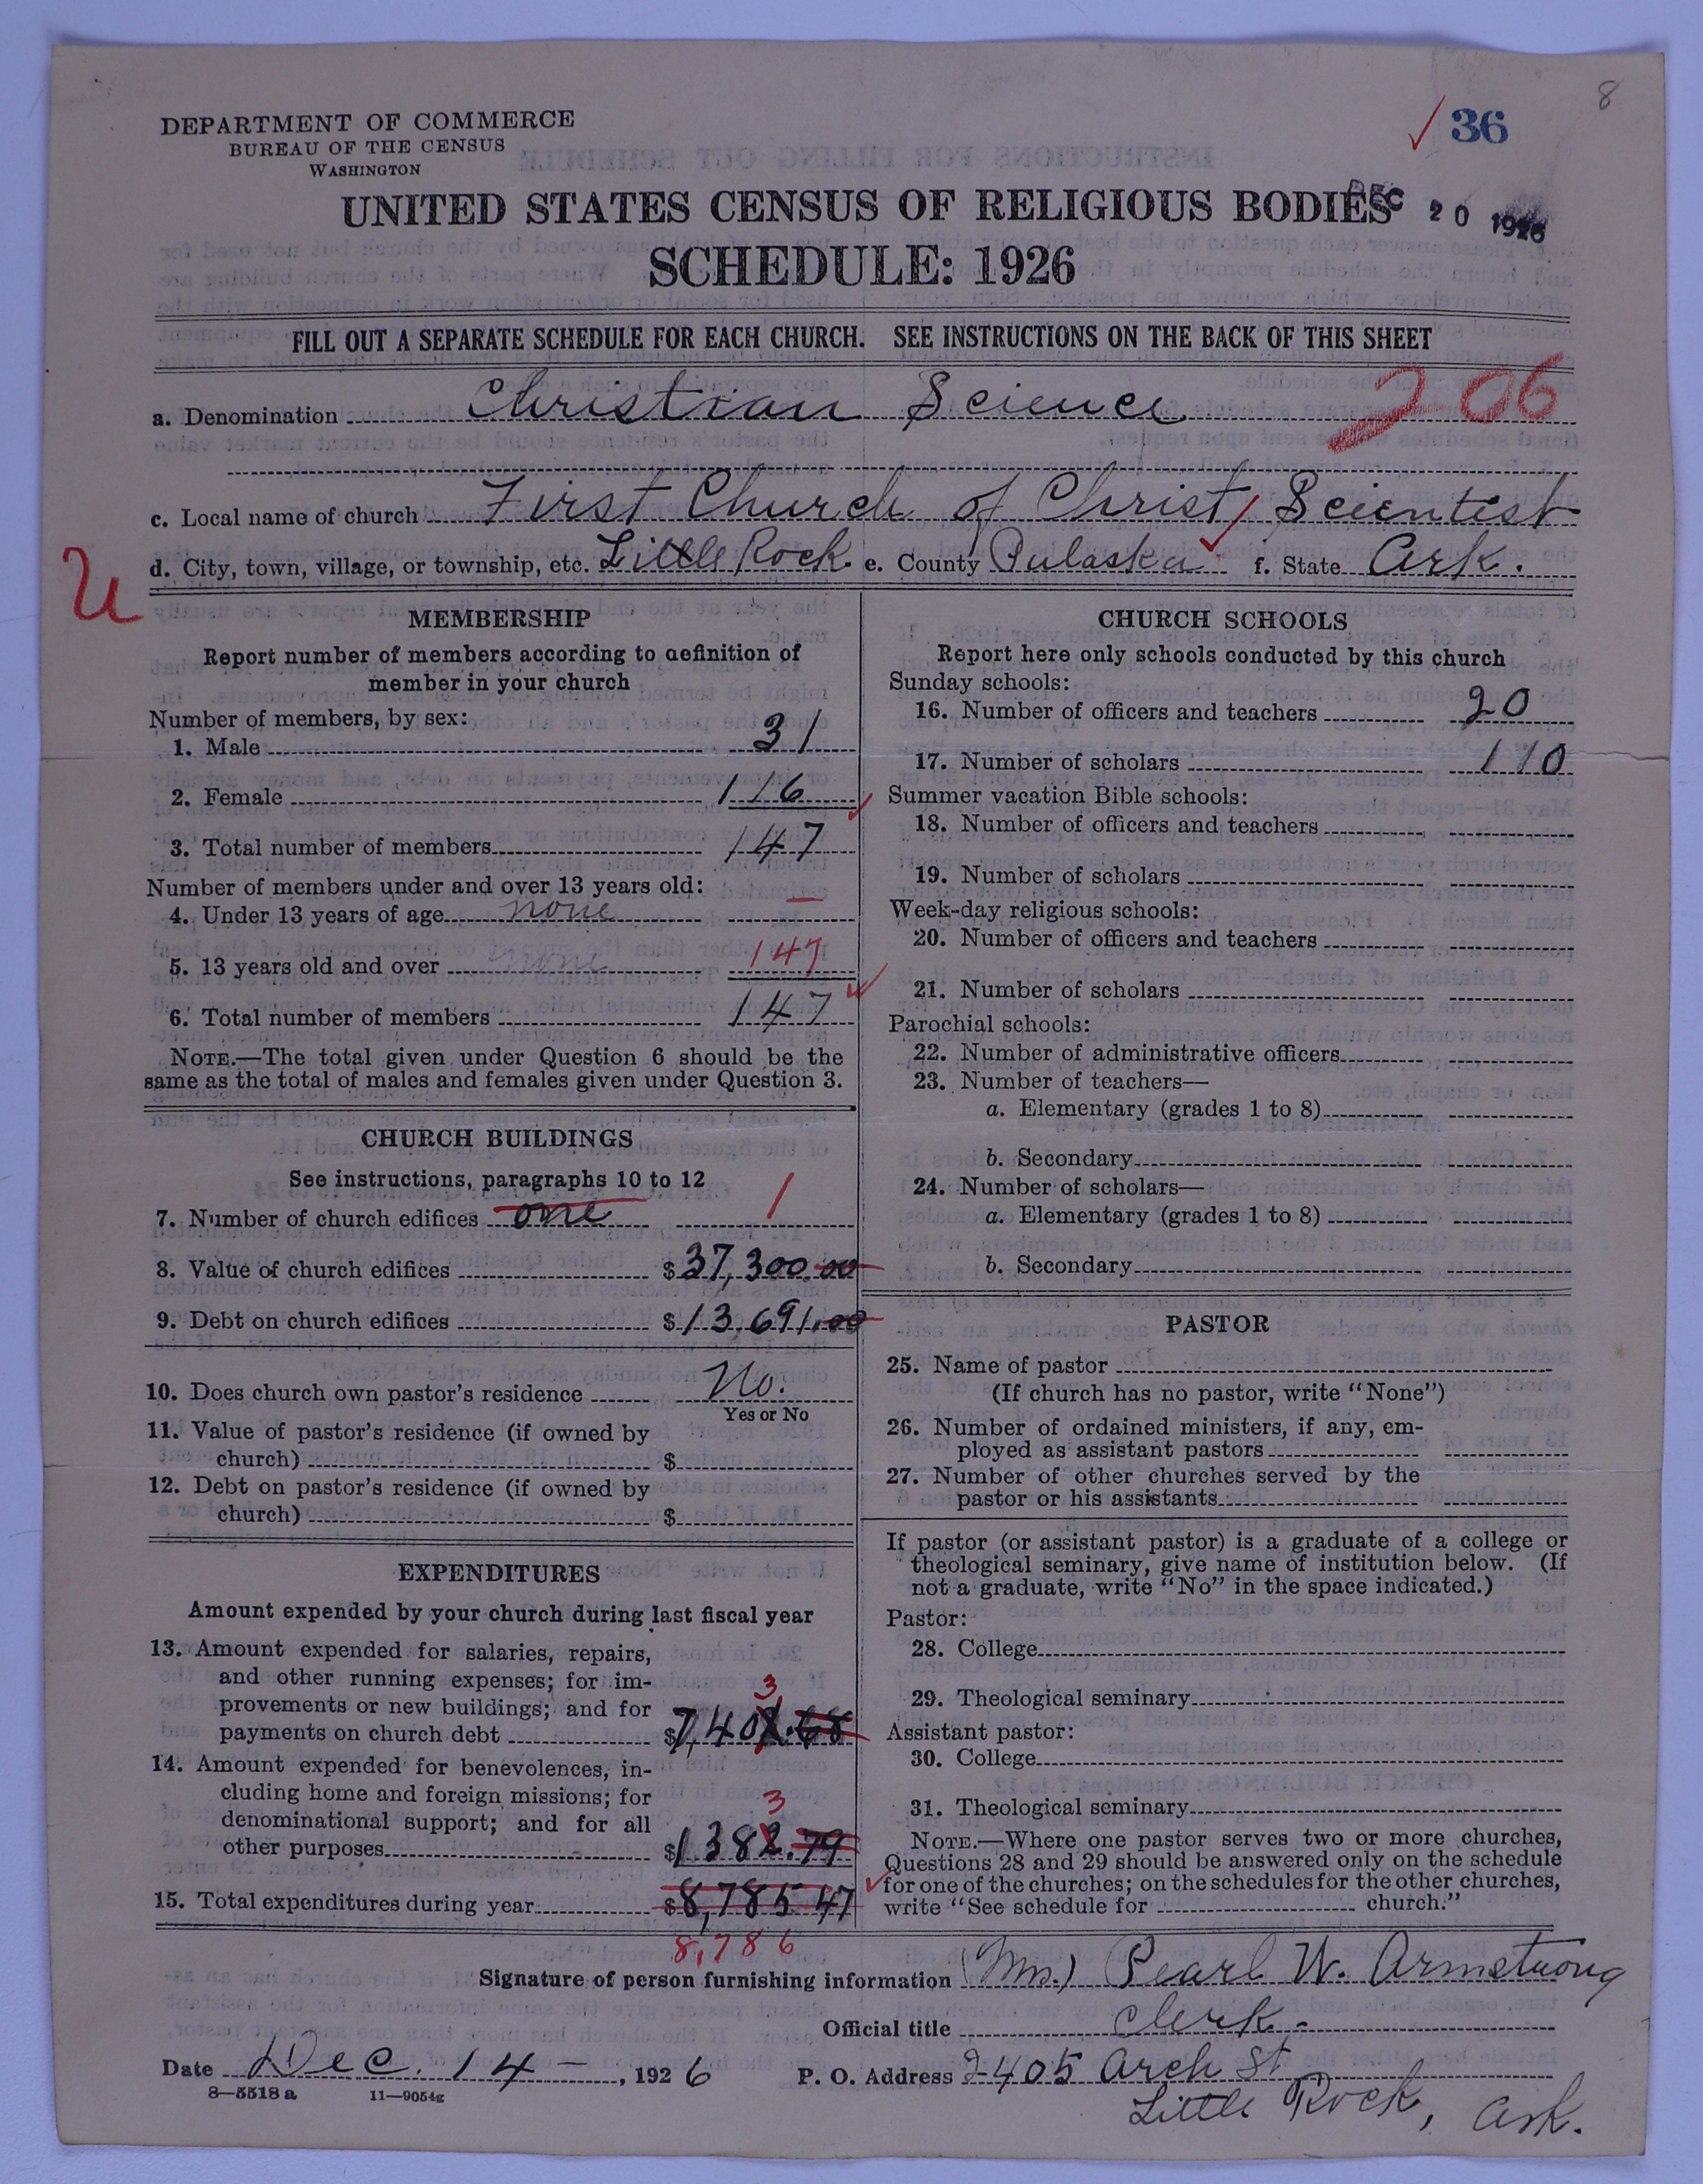 8
36
DEPARTMENT OF COMMERCE
BUREAU OF THE CENSUS
WASHINGTON
UNITED STATES CENSUS OF RELIGIOUS BODIES
DEC 20 1926
SCHEDULE: 1926
FILL OUT A SEPARATE SCHEDULE FOR EACH CHURCH. SEE INSTRUCTIONS ON THE BACK OF THIS SHEET
206
a. Denomination Christian Science
c. Local name of church First Church of Christ, Scientist
d. City, town, village, or township, etc. Little Rock. e. County Pulaska f. State Ark.
U
MEMBERSHIP
Report number of members according to definition of
member in your church
Number of members, by sex:
1. Male 31
2. Female 116
3. Total number of members 147
Number of members under and over 13 years old:
4. Under 13 years of age none —
5. 13 years old and over none 147
6. Total number of members 147
NOTE.—The total given under Question 6 should be the
same as the total of males and females given under Question 3.
CHURCH BUILDINGS
See instructions, paragraphs 10 to 12
7. Number of church edifices one 1
8. Value of church edifices $37,300.00
9. Debt on church edifices $13,691.00
10. Does church own pastor's residence No.
Yes or No
11. Value of pastor's residence (if owned by
church) $
12. Debt on pastor's residence (if owned by
church) $
EXPENDITURES
Amount expended by your church during last fiscal year
13. Amount expended for salaries, repairs,
and other running expenses; for im-
provements or new buildings; and for
3
payments on church debt $7,402.68
14. Amount expended for benevolences, in-
cluding home and foreign missions; for
denominational support; and for all
3
other purposes $1382.79
15. Total expenditures during year $8,785 47
8,786
CHURCH SCHOOLS
Report here only schools conducted by this church
Sunday schools:
16. Number of officers and teachers 20
17. Number of scholars 110
Summer vacation Bible schools:
18. Number of officers and teachers
19. Number of scholars
Week-day religious schools:
20. Number of officers and teachers
21. Number of scholars
Parochial schools:
22. Number of administrative officers
23. Number of teachers—
a. Elementary (grades 1 to 8)
b. Secondary
24. Number of scholars—
a. Elementary (grades 1 to 8)
b. Secondary
PASTOR
25. Name of pastor
(If church has no pastor, write "None")
26. Number of ordained ministers, if any, em-
ployed as assistant pastors
27. Number of other churches served by the
pastor or his assistants
If pastor (or assistant pastor) is a graduate of a college or
theological seminary, give name of institution below. (If
not a graduate, write "No" in the space indicated.)
Pastor:
28. College
29. Theological seminary
Assistant pastor:
30. College
31. Theological seminary
NOTE.—Where one pastor serves two or more churches,
Questions 28 and 29 should be answered only on the schedule
for one of the churches; on the schedules for the other churches,
write "See schedule for church."
Signature of person furnishing information (Mrs.) Pearl W. Armstrong
Official title Clerk.
Date Dec. 14 —, 1926 P. O. Address 2405 Arch St.
Little Rock, Ark.
8—5518 a 11—9054g